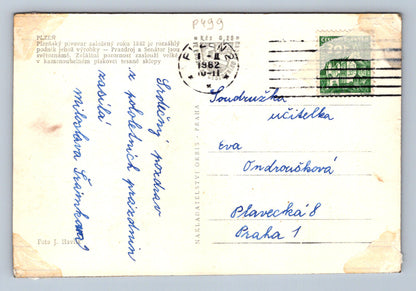 P499
PLZEŇ
Plzeňský pivovar založený roku 1842 je rozsáhlý
podnik jehož výrobky — Prazdroj a Senátor jsou
světoznámé. Zvláštní pozornost zaslouží velké
v kamenouhelném pískovci tesané sklepy
PLZEŇ
II
1962
10-11
ČESKOSLOVENSKO
Srdečný pozdrav
z pololetních prázdnin
zasílá
Miloslava
Soudružka
učitelka
Eva
Ondroušková
Plavecká 8
Praha 1
NAKLADATELSTVÍ ORBIS - PRAHA
Foto J.